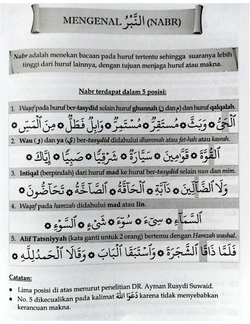 MENGENAL النَّبْرُ (NABR)
Nabr adalah menekan bacaan pada huruf tertentu sehingga suaranya lebih
tinggi dari huruf lainnya, dengan tujuan menjaga huruf atau makna.
Nabr terdapat dalam 5 posisi:
1. Waqf pada huruf ber-tasydid selain huruf ghunnah (ن dan م) dan huruf qalqalah.
الْحَيُّ ۞ وَبَثَّ ۞ مُسْتَقِرٌّ ۞ مُسْتَمِرٌّ ۞ وَابِلٌ فَطَلٌّ ۞ مِنَ الْمَسِّ ۞
2. Wau (و) dan ya (ي) ber-tasydid didahului dhammah atau fat-hah atau kasrah.
الْقُوَّةَ ۞ قَوَّامِينَ ۞ سَيَّارَةٌ ۞ شَرْقِيًّا ۞ صَبِيًّا ۞ إِيَّاكَ ۞
3. Intiqal (berpindah) dari huruf mad ke huruf ber-tasydid selain nun.
وَلَا الضَّالِّينَ ۞ دَآبَّةٍ ۞ الْحَآقَّةُ ۞ الصَّآخَّةُ ۞ تَحَاضُّونَ ۞
4. Waqf pada hamzah didahului mad atau lin.
السَّمَآءِ ۞ سِيءَ ۞ سُوٓءَ ۞ شَيْءٍ ۞ السَّوْءِ ۞
5. Alif Tatsniyyah (kata ganti untuk 2 orang) bertemu dengan Hamzah washal.
فَلَمَّا ذَاقَا الشَّجَرَةَ ۞ وَاسْتَبَقَا الْبَابَ ۞ وَقَالَا الْحَمْدُ لِلَّهِ ۞
Catatan:
• Lima posisi di atas menurut penelitian DR. Ayman Rusydi Suwaid.
• No. 5 dikecualikan pada kalimat دَعَوَا اللَّهَ karena tidak menyebabkan
kerancuan makna.